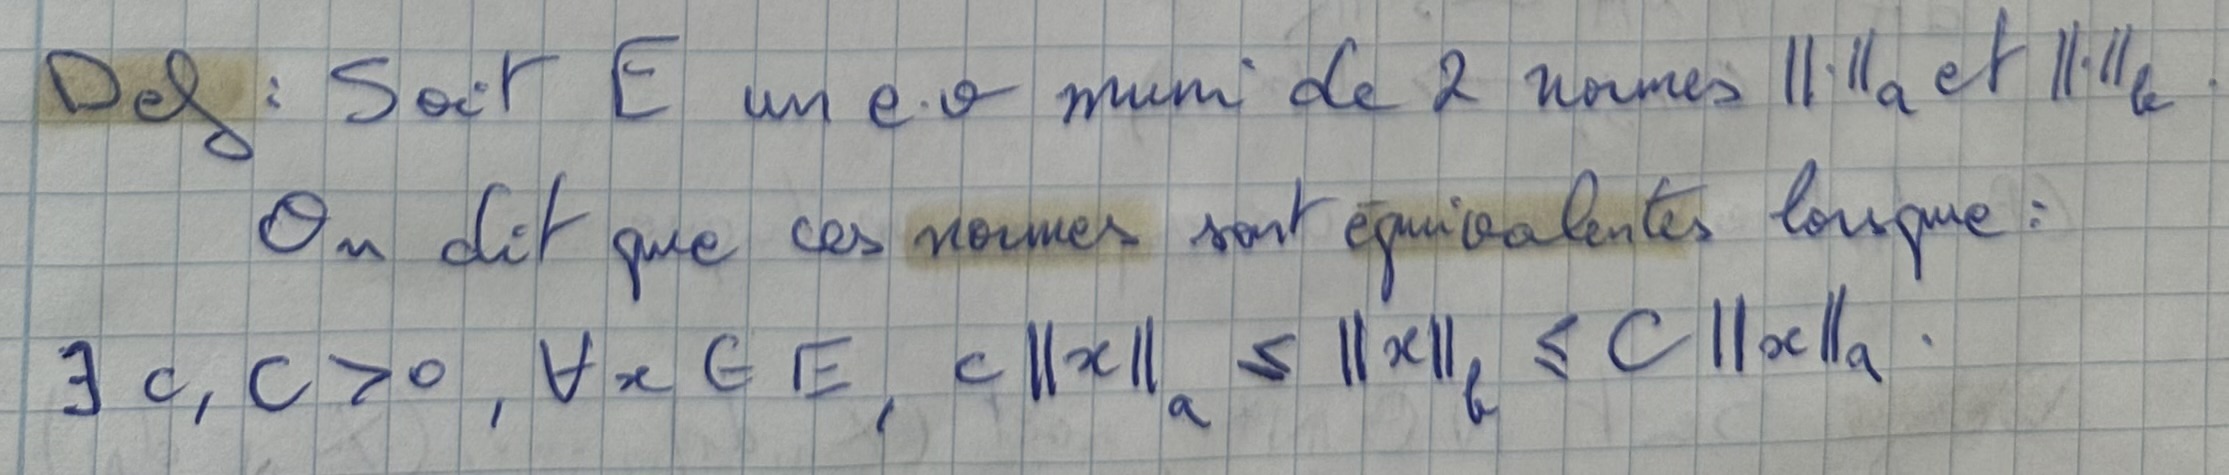 Def : Soit E un e.v muni de 2 normes ||·||a et ||·||b.
On dit que ces normes sont équivalentes lorsque :
∃ c, C > 0, ∀x ∈ E, c ||x||a ≤ ||x||b ≤ C ||x||a.